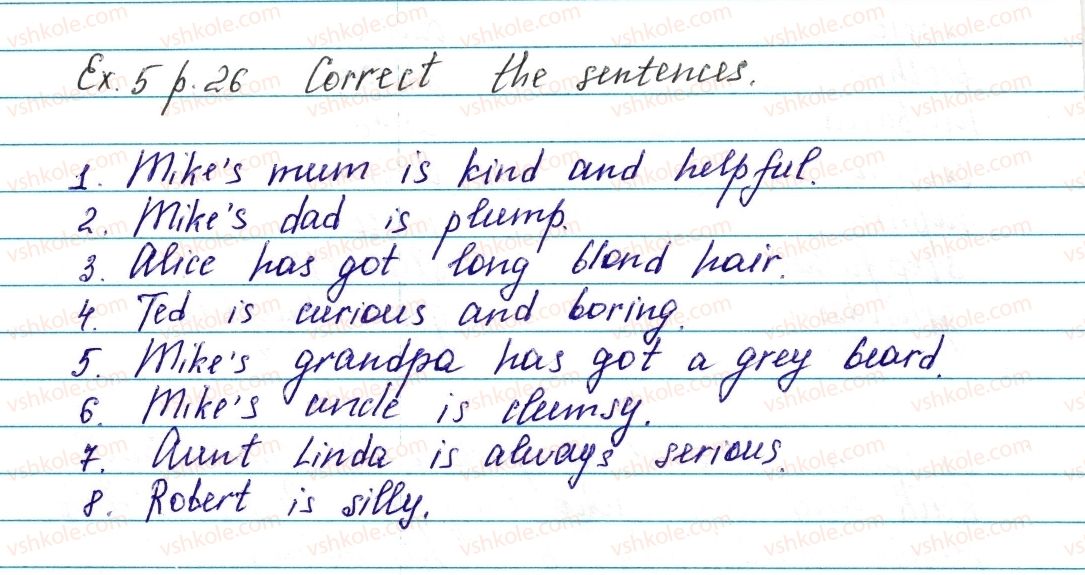 Ex. 5 p. 26 Correct the sentences.
1. Mike's mum is kind and helpful.
2. Mike's dad is plump.
3. Alice has got long blond hair.
4. Ted is curious and boring.
5. Mike's grandpa has got a grey beard.
6. Mike's uncle is clumsy.
7. Aunt Linda is always serious.
8. Robert is silly.